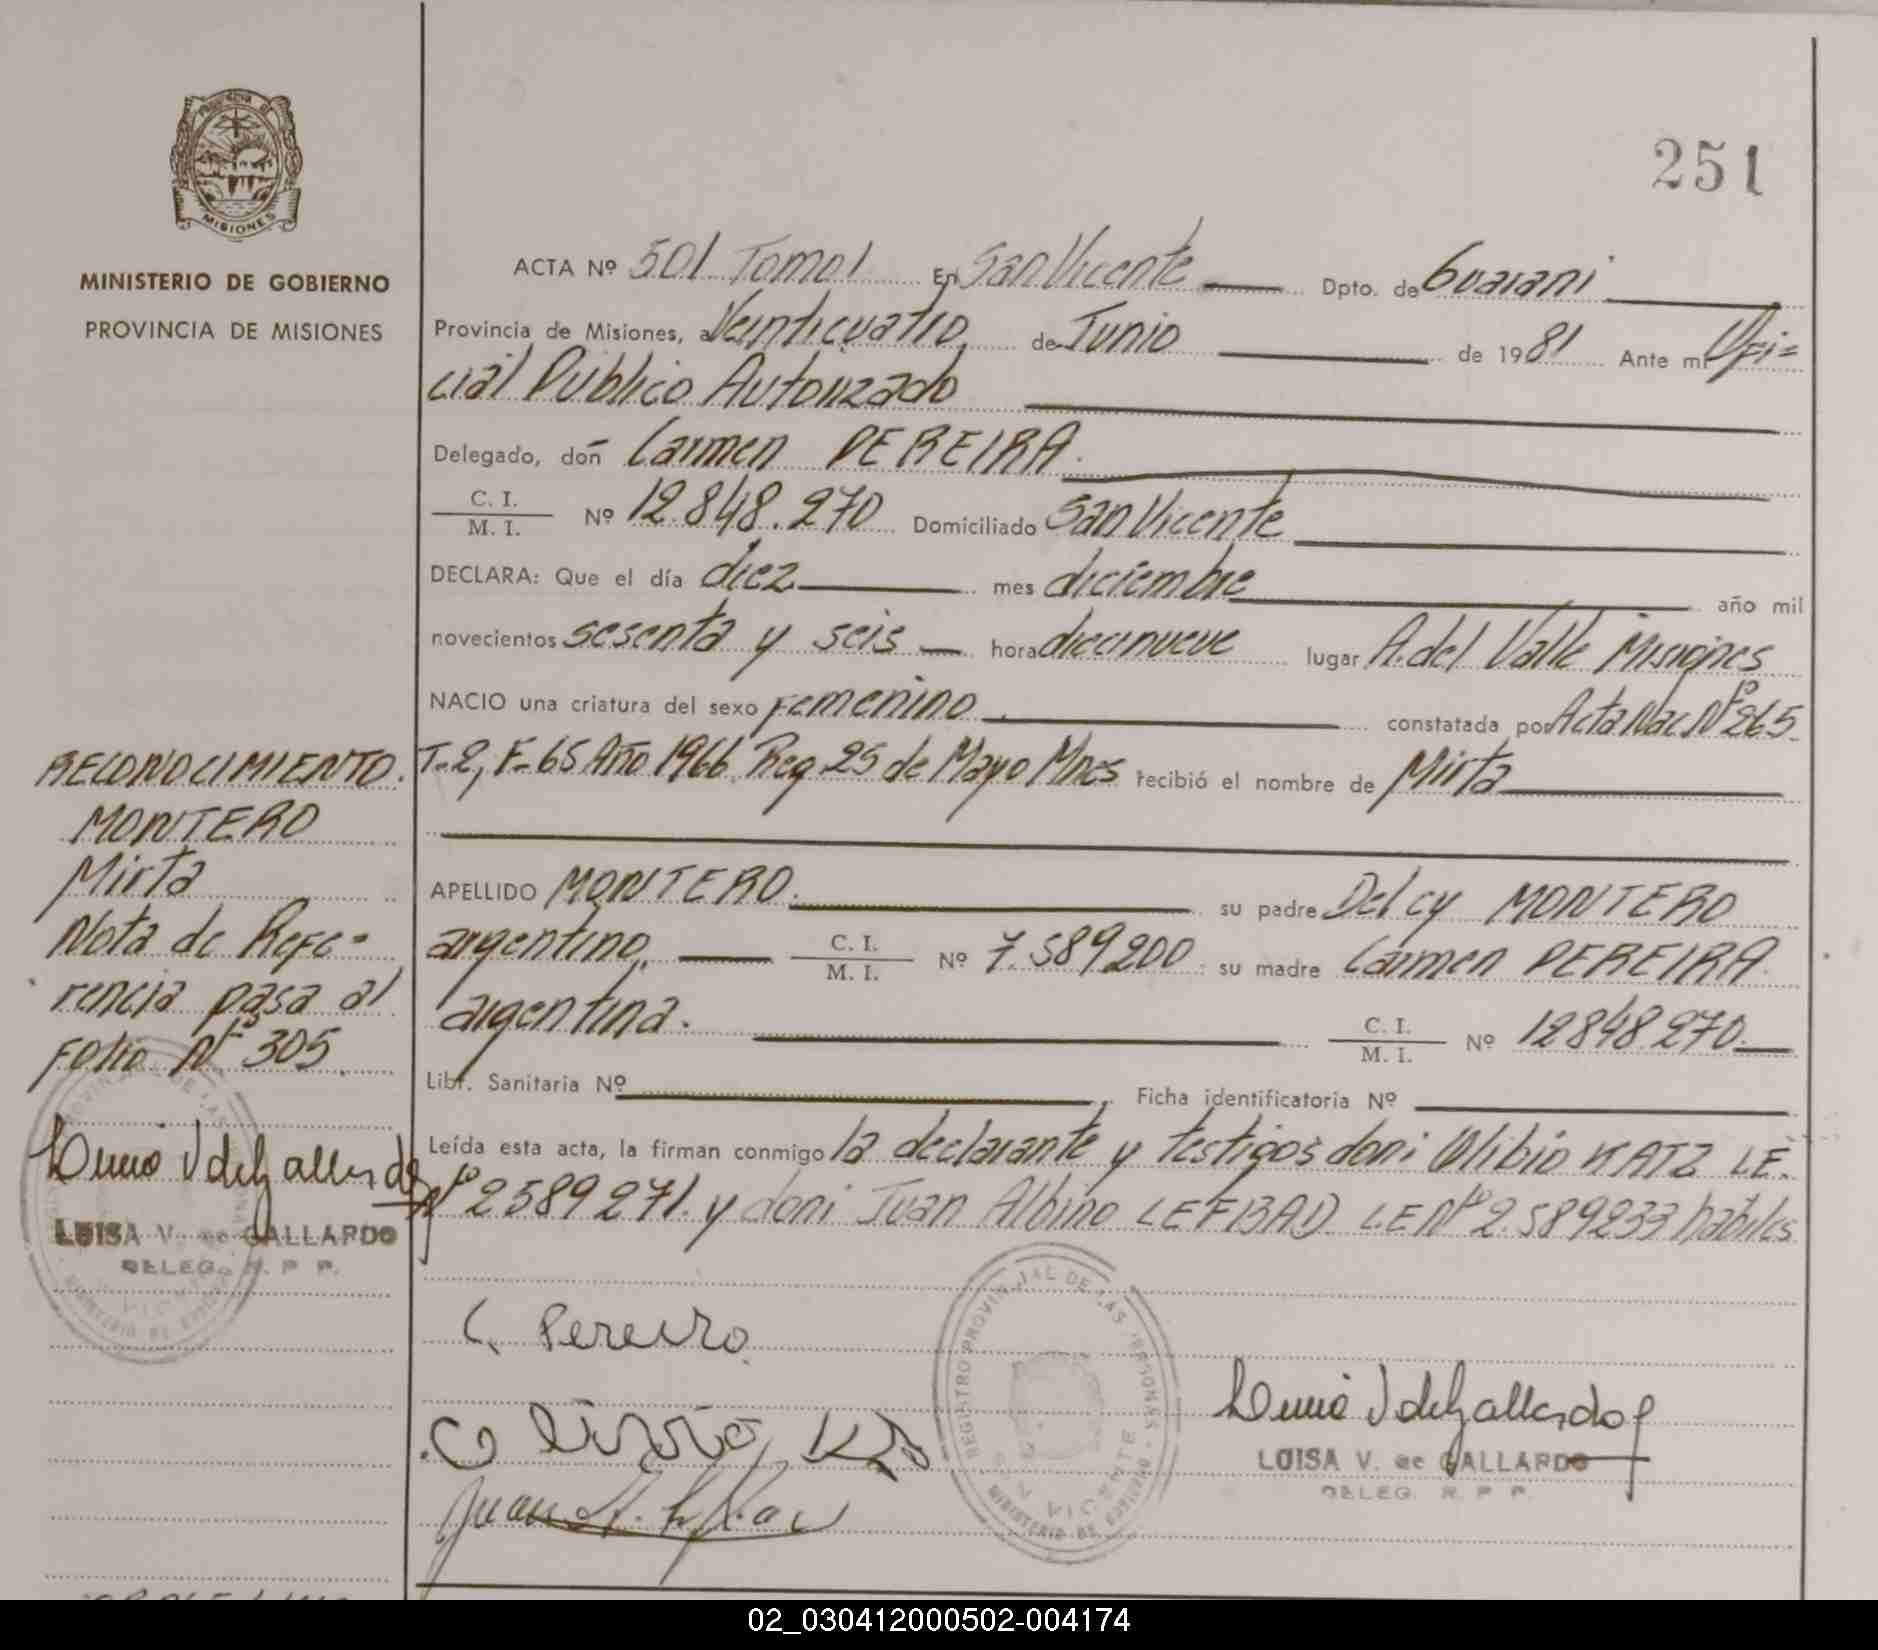 PROVINCIA DE
MISIONES
MINISTERIO DE GOBIERNO
PROVINCIA DE MISIONES
251
ACTA Nº 501 Tomo I En San Vicente Dpto. de Guaraní
Provincia de Misiones, a Veinticuatro de Junio de 1981 Ante mí Ofi=
cial Público Autorizado
Delegado, doñ Carmen PEREIRA.
C. I.
M. I.
Nº 12.848.270 Domiciliado San Vicente
DECLARA: Que el día diez mes diciembre año mil
novecientos sesenta y seis hora diecinueve lugar A. del Valle Misiones
NACIO una criatura del sexo Femenino constatada por Acta Nac. Nº 265
T-2, F-65 Año 1966 Reg 25 de Mayo Mnes recibió el nombre de Mirta
APELLIDO MONTERO su padre Delcy MONTERO
argentino C. I.
M. I.
Nº 7.589200 su madre Carmen PEREIRA
argentina. C. I.
M. I.
Nº 12848270
Libr. Sanitaria Nº Ficha identificatoria Nº
Leída esta acta, la firman conmigo la declarante y testigos don: Olibio KATZ LE.
Nº 2589271. y don: Juan Albino LEFBAD LE Nº 2.589233 habiles
RECONOCIMIENTO.
MONTERO
Mirta
Nota de Refe=
rencia pasa al
Folio Nº 305.
LUISA V. de GALLARDO
DELEG. R. P. P.
C. Pereira
REGISTRO PROVINCIAL DE LAS PERSONAS
SAN VICENTE
MINISTERIO DE GOBIERNO
LUISA V. de GALLARDO
DELEG. R. P. P.
02_030412000502-004174